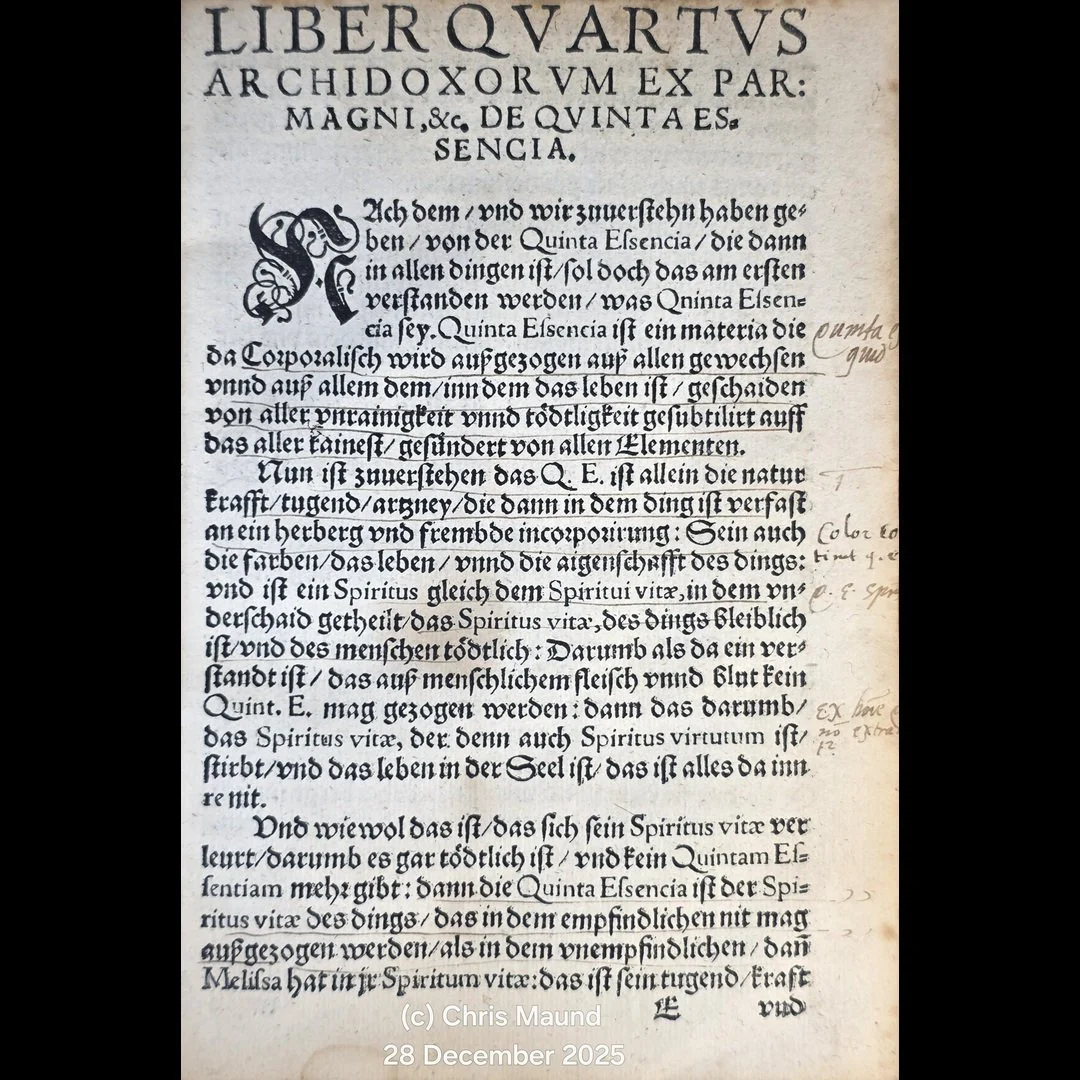 LIBER QVARTVS
ARCHIDOXORVM EX PAR:
MAGNI, &c. DE QVINTA ES⸗
SENCIA.
NAch dem / vnd wir zuuerstehn haben ge⸗
ben / von der Quinta Essencia / die dann
in allen dingen ist / sol doch das am ersten
verstanden werden / was Qninta Essen⸗
cia sey. Quinta Essencia ist ein materia die
da Corporalisch wird außgezogen auß allen gewechsen
vnnd auß allem dem / inn dem das leben ist / geschaiden
von aller vnrainigkeit vnnd tödtligkeit gesubtilirt auff
das aller rainest / gesündert von allen Elementen.
Nun ist zuuerstehen das Q. E. ist allein die natur
krafft / tugend / artzney / die dann in dem ding ist verfast
an ein herberg vnd frembde incorporirung: Sein auch
die farben / das leben / vnnd die aigenschafft des dings:
vnd ist ein Spiritus gleich dem Spiritui vitæ, in dem vn⸗
derschaid getheilt / das Spiritus vitæ, des dings bleiblich
ist / vnd des menschen tödtlich: Darumb als da ein ver⸗
standt ist / das auß menschlichem fleisch vnnd blut kein
Quint. E. mag gezogen werden: dann das darumb /
das Spiritus vitæ, der denn auch Spiritus virtutum ist /
stirbt / vnd das leben in der Seel ist / das ist alles da inn
re nit.
Vnd wiewol das ist / das sich sein Spiritus vitæ ver
leurt / darumb es gar tödtlich ist / vnd kein Quintam Es⸗
sentiam mehr gibt: dann die Quinta Essencia ist der Spi⸗
ritus vitæ des dings / das in dem empfindlichen nit mag
außgezogen werden / als in dem vnempfindlichen / dañ
Melissa hat in jr Spiritum vitæ: das ist sein tugend / kraft
E vnd
quid
Color
q. e
Q. E.
Ex
(c) Chris Maund
28 December 2025